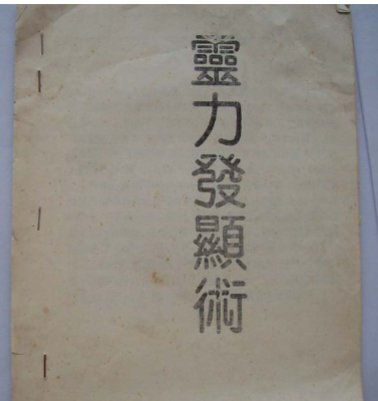 靈力發顯術